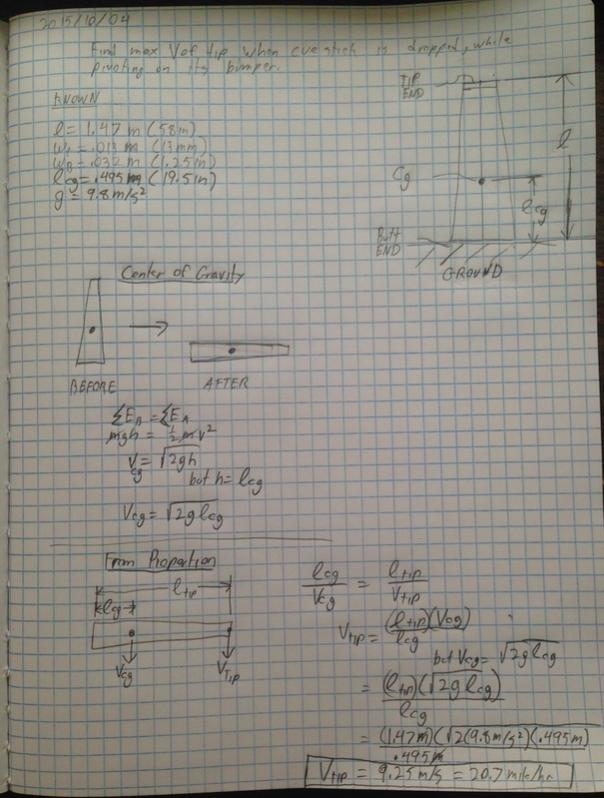 2015/10/04
Find max V of tip when cue stick is dropped, while
pivoting on its bumper.
KNOWN
l = 1.47 m (58in)
w_t = .013 m (13mm)
w_B = .032 m (1.25in)
l_cg = .495 m (19.5in)
g = 9.8 m/s²
TIP
END
Cg
l
l_cg
Butt
END
GROUND
Center of Gravity
BEFORE
AFTER
ΣE_B = ΣE_A
mgh = ½mv²
V_cg = √2gh
but h = l_cg
V_cg = √2g l_cg
From Proportion
l_tip
l_cg
V_cg
V_Tip
l_cg / V_cg = l_tip / V_tip
V_tip = (l_tip)(V_cg) / l_cg
but V_cg = √2g l_cg
= (l_tip)(√2g l_cg) / l_cg
= (1.47m)(√2(9.8m/s²)(.495m) / .495m
V_tip = 9.25 m/s = 20.7 mile/hr